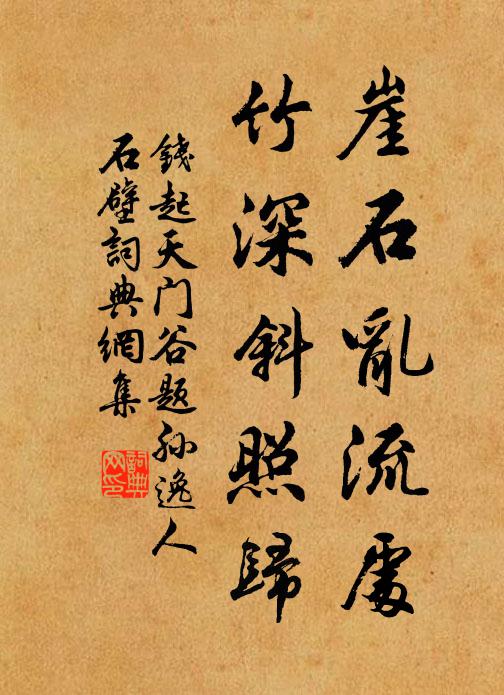 崖石亂流處
竹深斜照歸
錢起天门谷题孙逸人
石壁詞典網集
詞典网印